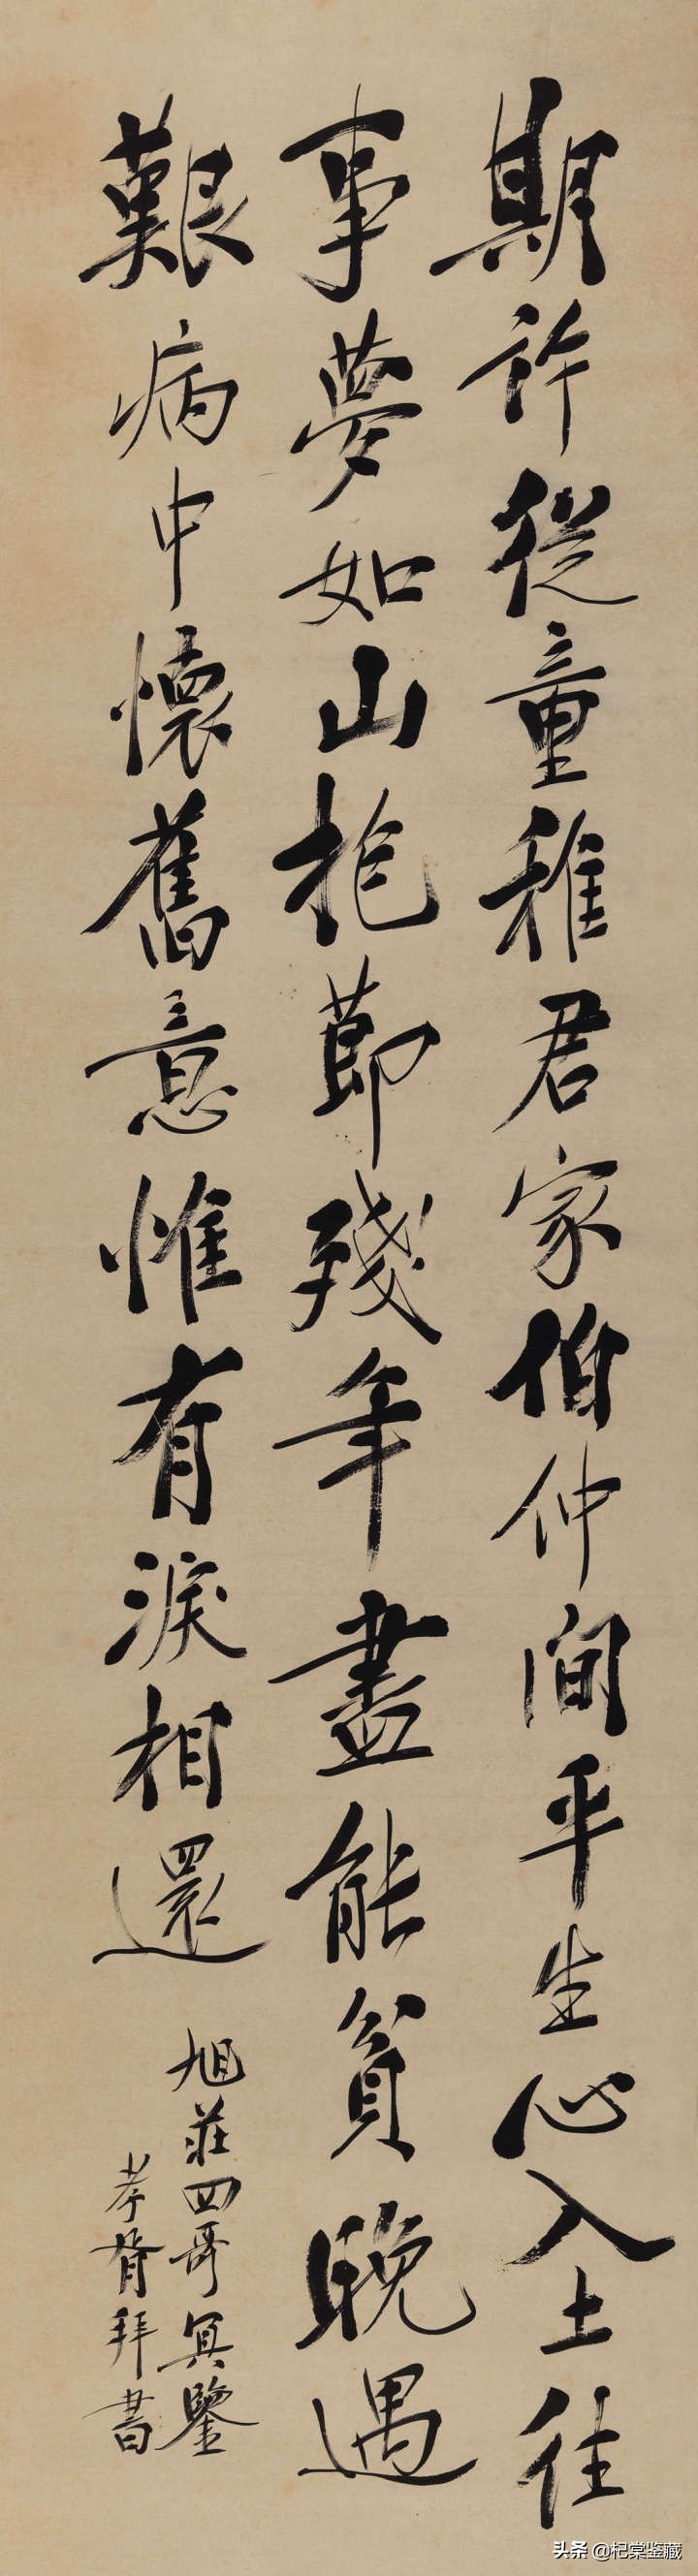 期許從童稚君家伯仲間平生心入土往
事夢如山抱節殘年盡能貧晚遇
艱病中懷舊意惟有淚相還
旭莊四哥冥鑒
孝胥拜書
头条 @杞棠鉴藏